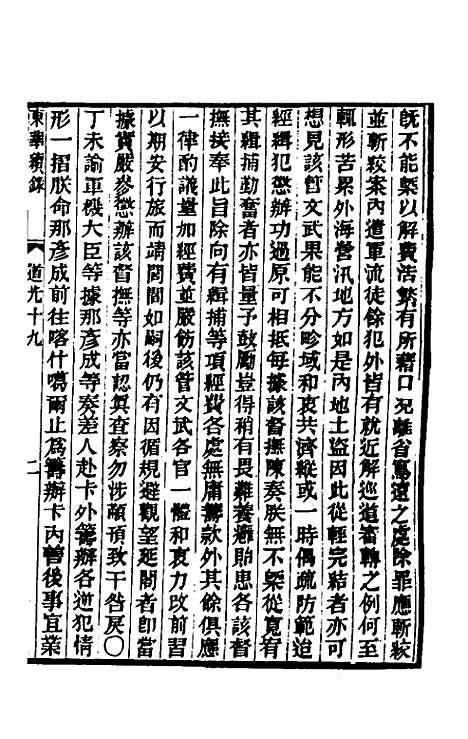 旣不能槩以解費浩繁有所藉口况離省寫遠之處除罪應斬絞
並斬絞案內遣軍流徒餘犯外皆有就近解巡道審轉之例何至
輒形苦累外海營汛地方如是內地土盜因此從輕完結者亦可
想見該管文武果能不分畛域和衷共濟縱或一時偶疏防範迨
經緝犯懲辦功過原可相抵每據該督撫陳奏朕無不槩從寬宥
其緝捕勤奮者亦皆量予鼓勵豈得稍有畏難養癰貽患各該督
撫接奉此旨除向有緝捕等項經費各處無庸籌款外其餘俱應
一律酌議量加經費並嚴飭該管文武各官一體和衷力改前習
以期安行旅而靖閭閻如嗣後仍有因循規避觀望延閣者卽當
據實嚴參懲辦該督撫等亦當認眞查察勿涉顢頇致干咎戾〇
丁未諭軍機大臣等據那彥成等奏差人赴卡外籌辦各逆犯情
形一摺朕命那彥成前往喀什噶爾止爲籌辦卡內善後事宜業
東華續錄
道光十九
二